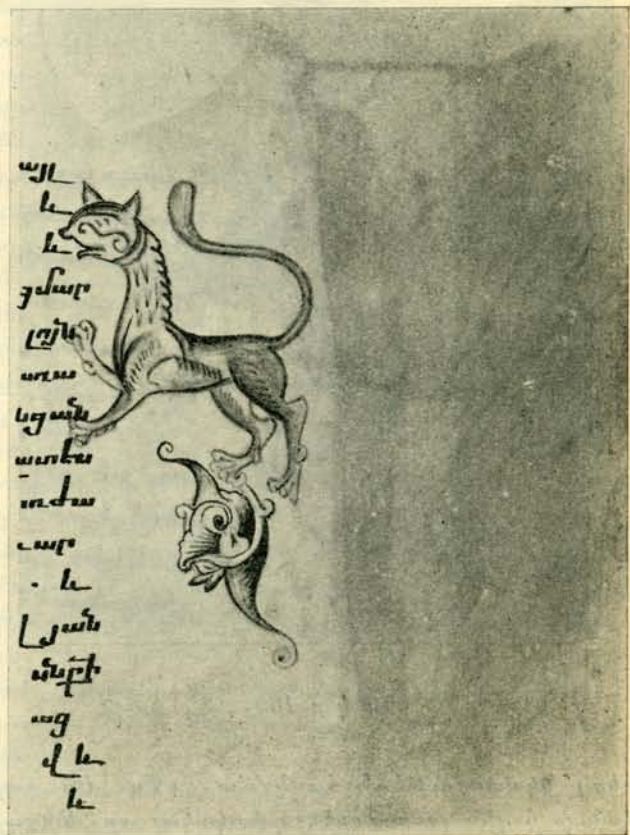 այլ
և
և
չմար
լոյն
առա
եցան
ատէա
ուժա
ւար
. և
լջան
անրի
աց
վ և
և